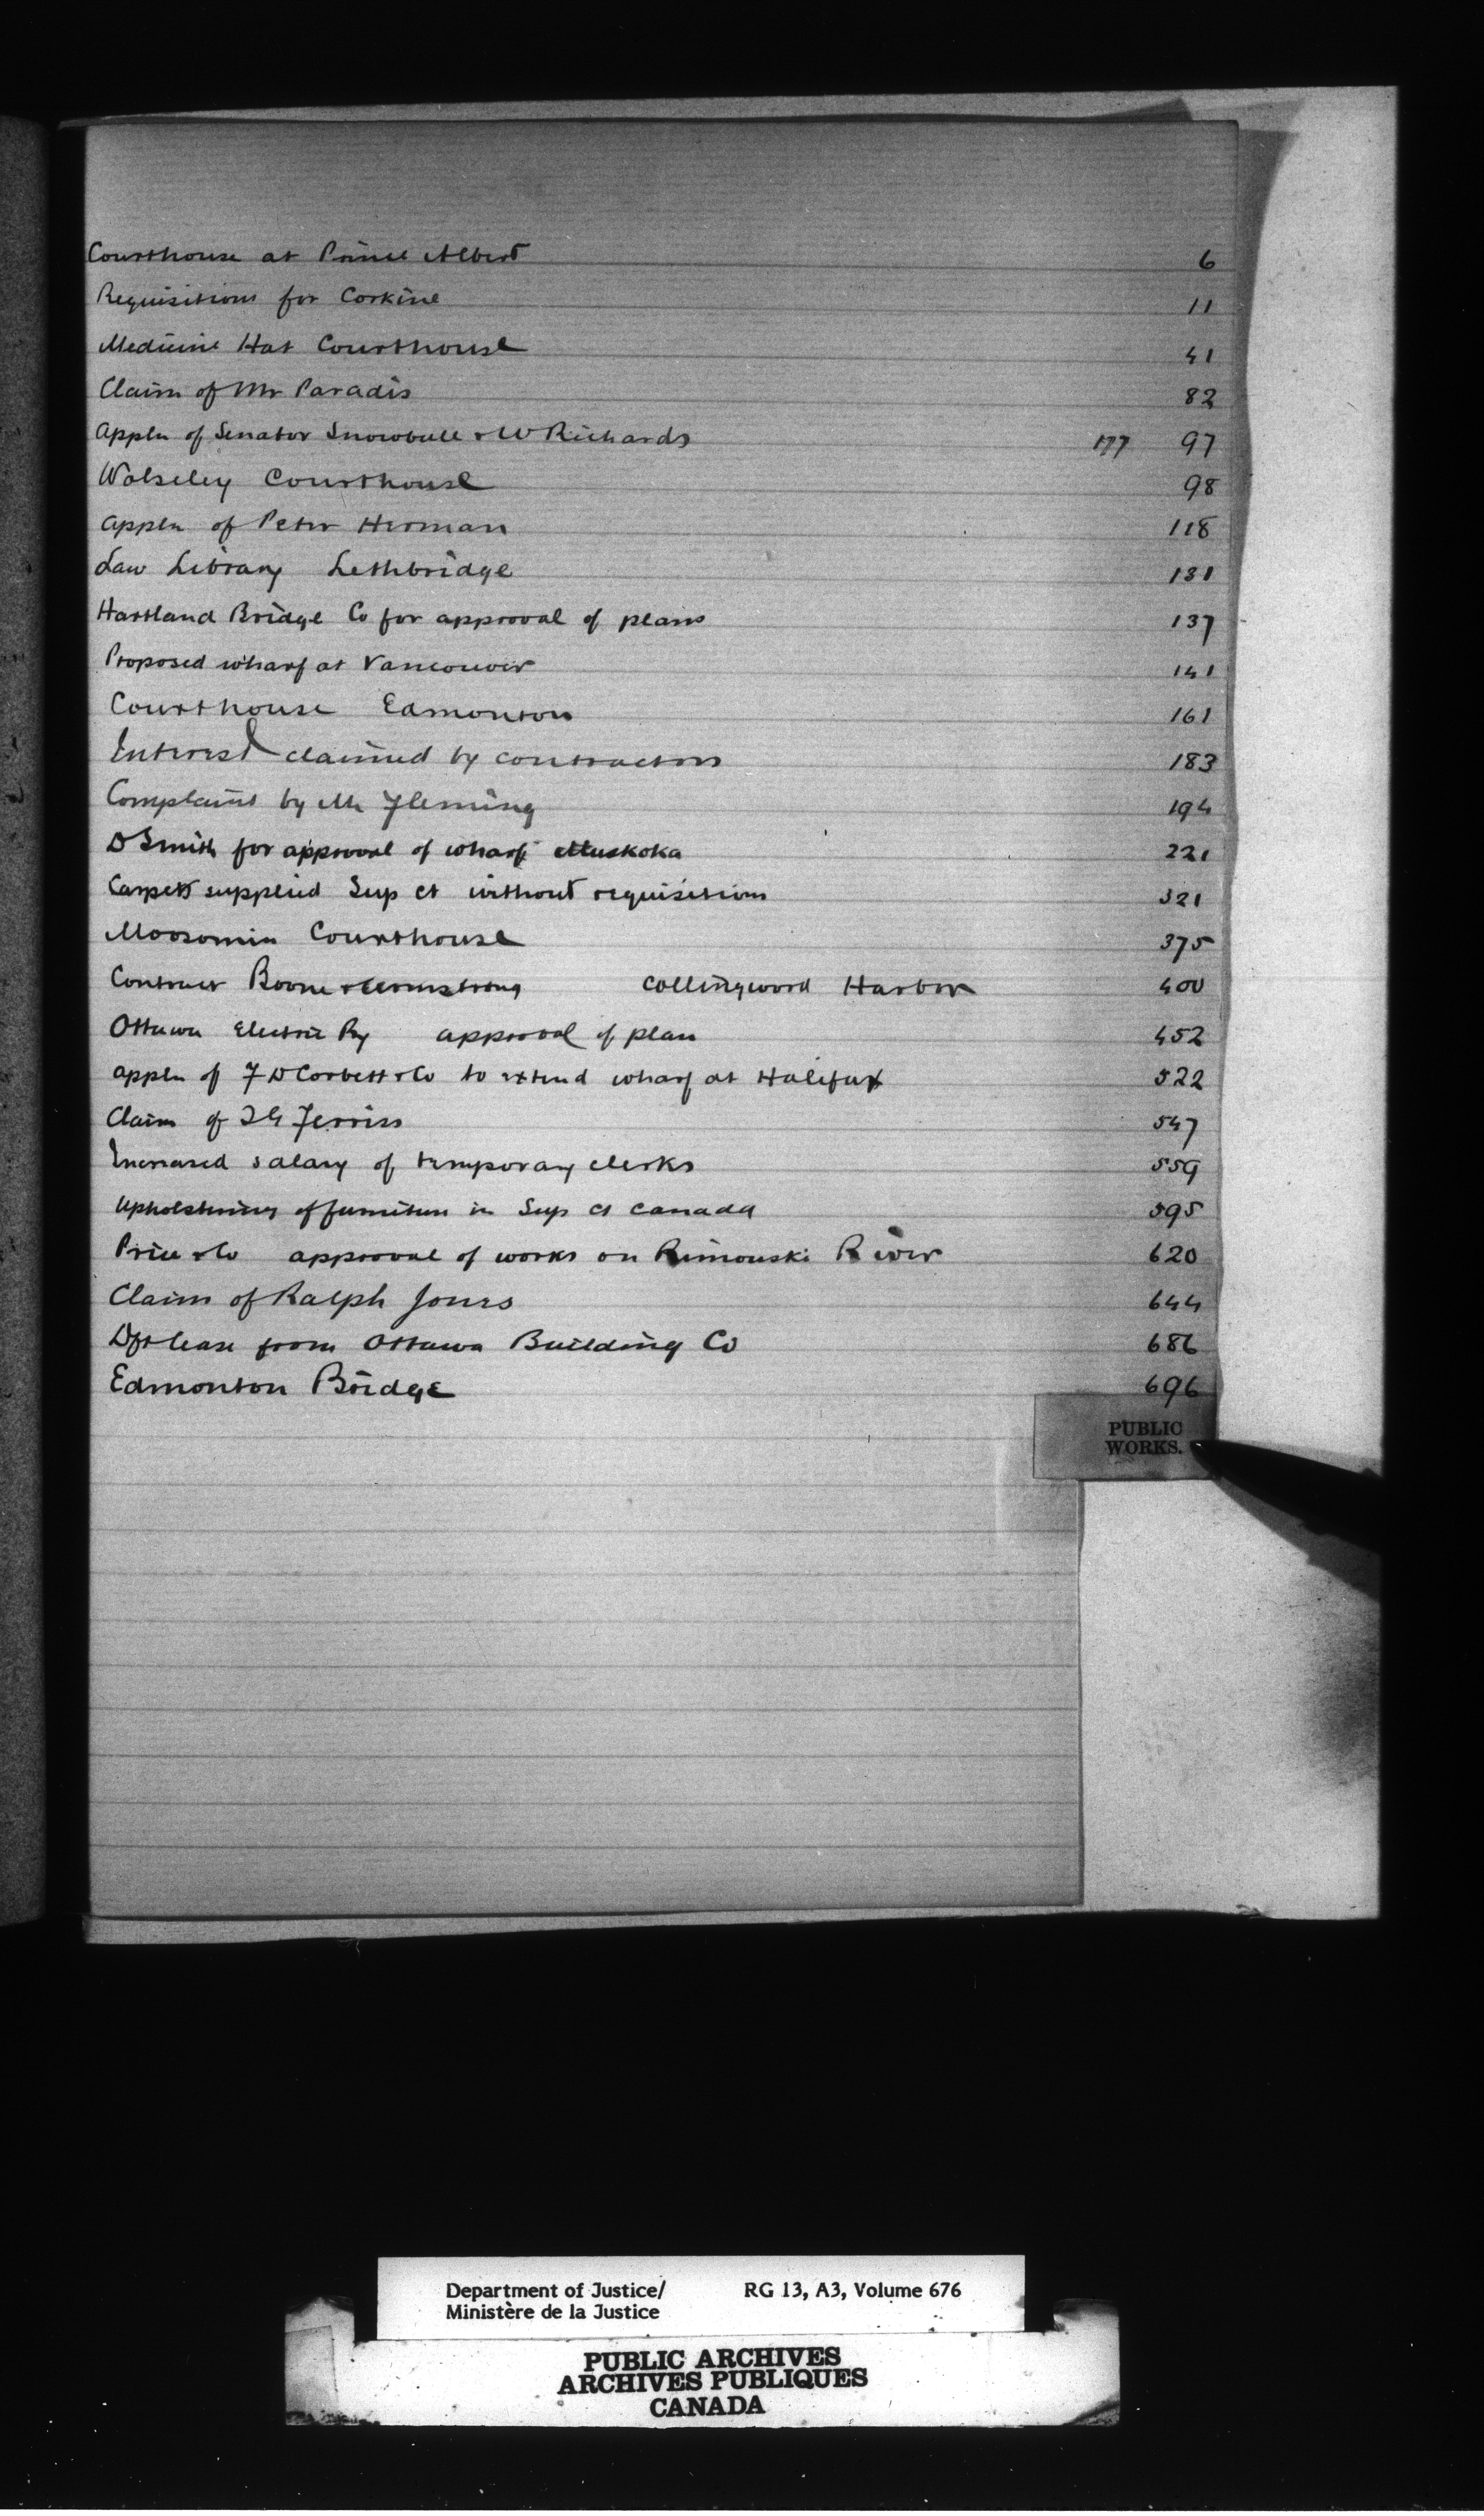 Courthouse at Prince Albert 6
Requisitions for Corkine 11
Medicine Hat Courthouse 41
Claim of Mr Paradis 82
Appln of Senator Snowball & W Richards 177 97
Wolseley Courthouse 98
Appln of Peter Herman 118
Law Library Lethbridge 131
Hartland Bridge Co for approval of plans 137
Proposed wharf at Vancouver 141
Courthouse Edmonton 161
Interest claimed by contractors 183
Complaint by Mr Fleming 194
D Smith for approval of wharf Muskoka 221
Carpets supplied Sup Ct without requisition 321
Moosomin Courthouse 375
Contract Boone & Armstrong Collingwood Harbor 400
Ottawa Electric Ry approval of plan 452
Appln of F D Corbett & Co to extend wharf at Halifax 522
Claim of Ferriss 547
Increased salary of temporary clerks 559
Upholstering of furniture in Sup Ct Canada 595
Price & Co approval of works on Rimouski River 620
Claim of Ralph Jones 644
Dft lease from Ottawa Building Co 686
Edmonton Bridge 696
PUBLIC
WORKS.
Department of Justice/ RG 13, A3, Volume 676
Ministère de la Justice
PUBLIC ARCHIVES
ARCHIVES PUBLIQUES
CANADA